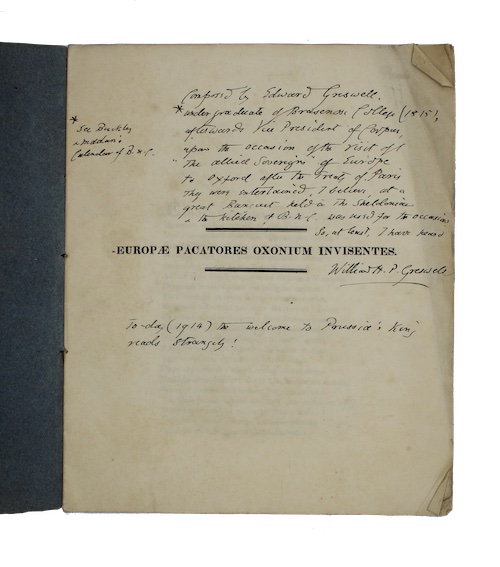 Composed by Edward Greswell,
* undergraduate of Brasenose College (1815),
afterwards Vice President of Corpus,
upon the occasion of the visit of
"The allied Sovereigns" of Europe
to Oxford after the Treaty of Paris
They were entertained, I believe, at a
great Banquet held in The Sheldonian
& the kitchen of B.N.C. was used for the occasion
So, at least, I have heard
*
See Buckley
& Madan's
Calendar of B.N.C.
EUROPÆ PACATORES OXONIUM INVISENTES.
William H. P. Greswell
To-day (1914) the welcome to Prussia's King
reads strangely!